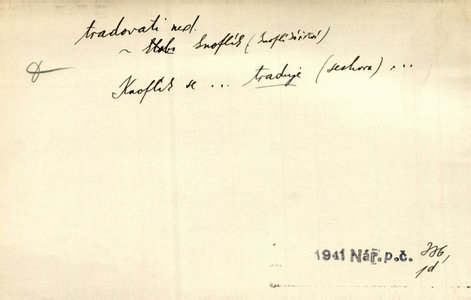 tradovati ned.
~ knoflík (knoflíkářství)
Knoflík se ... traduje (seshora) ...
1941 Nář.p.č. 336,
1d